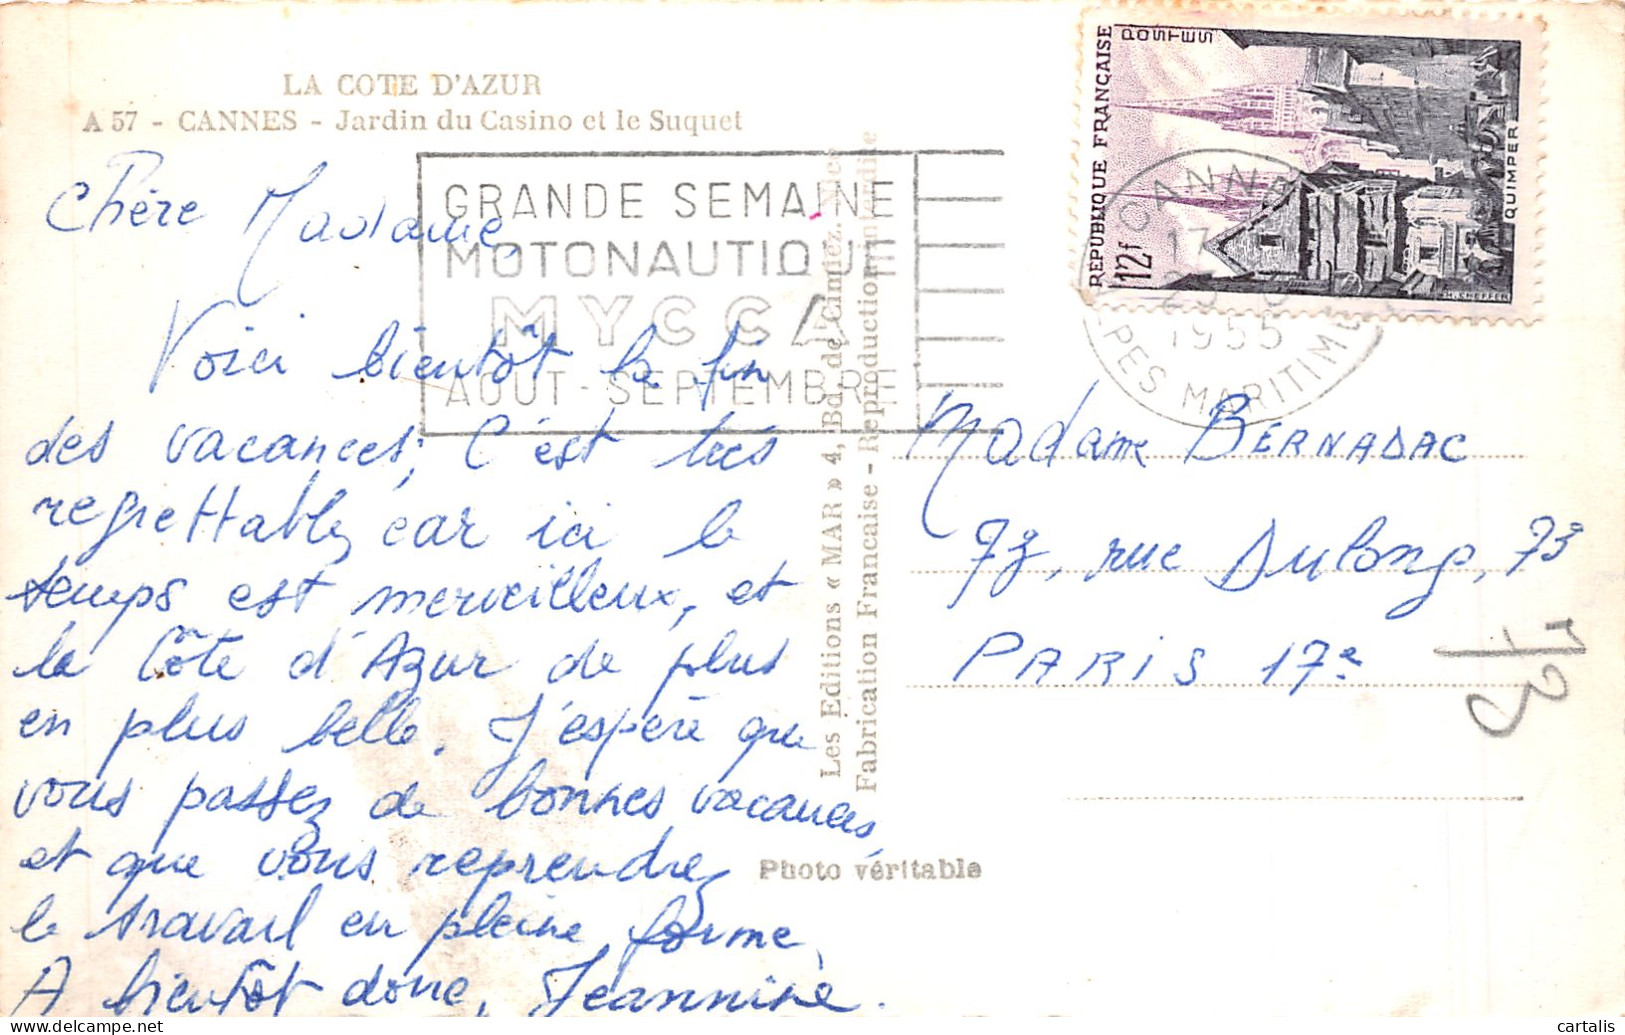 LA COTE D'AZUR
A 57 - CANNES - Jardin du Casino et le Suquet
GRANDE SEMAINE
MOTONAUTIQUE
MYCCA
AOUT - SEPTEMBRE
REPUBLIQUE FRANÇAISE
POSTES
12f
QUIMPER
H. CHEFFER
CANNES
17
1955
ALPES MARITIMES
Chère Madame,
Voici bientôt la fin
des vacances, C'est très
regrettable, car ici le
temps est merveilleux, et
la Côte d'Azur de plus
en plus belle. J'espère que
vous passez de bonnes vacances
et que vous reprendrez
le travail en pleine forme.
A bientôt donc, Jeannine.
Les Editions « MAR » 4, Bd. de Cimiez, Nice
Fabrication Francaise - Reproduction interdite
Photo véritable
Madame BERNADAC
73, rue Dulong, 73
PARIS 17e
73